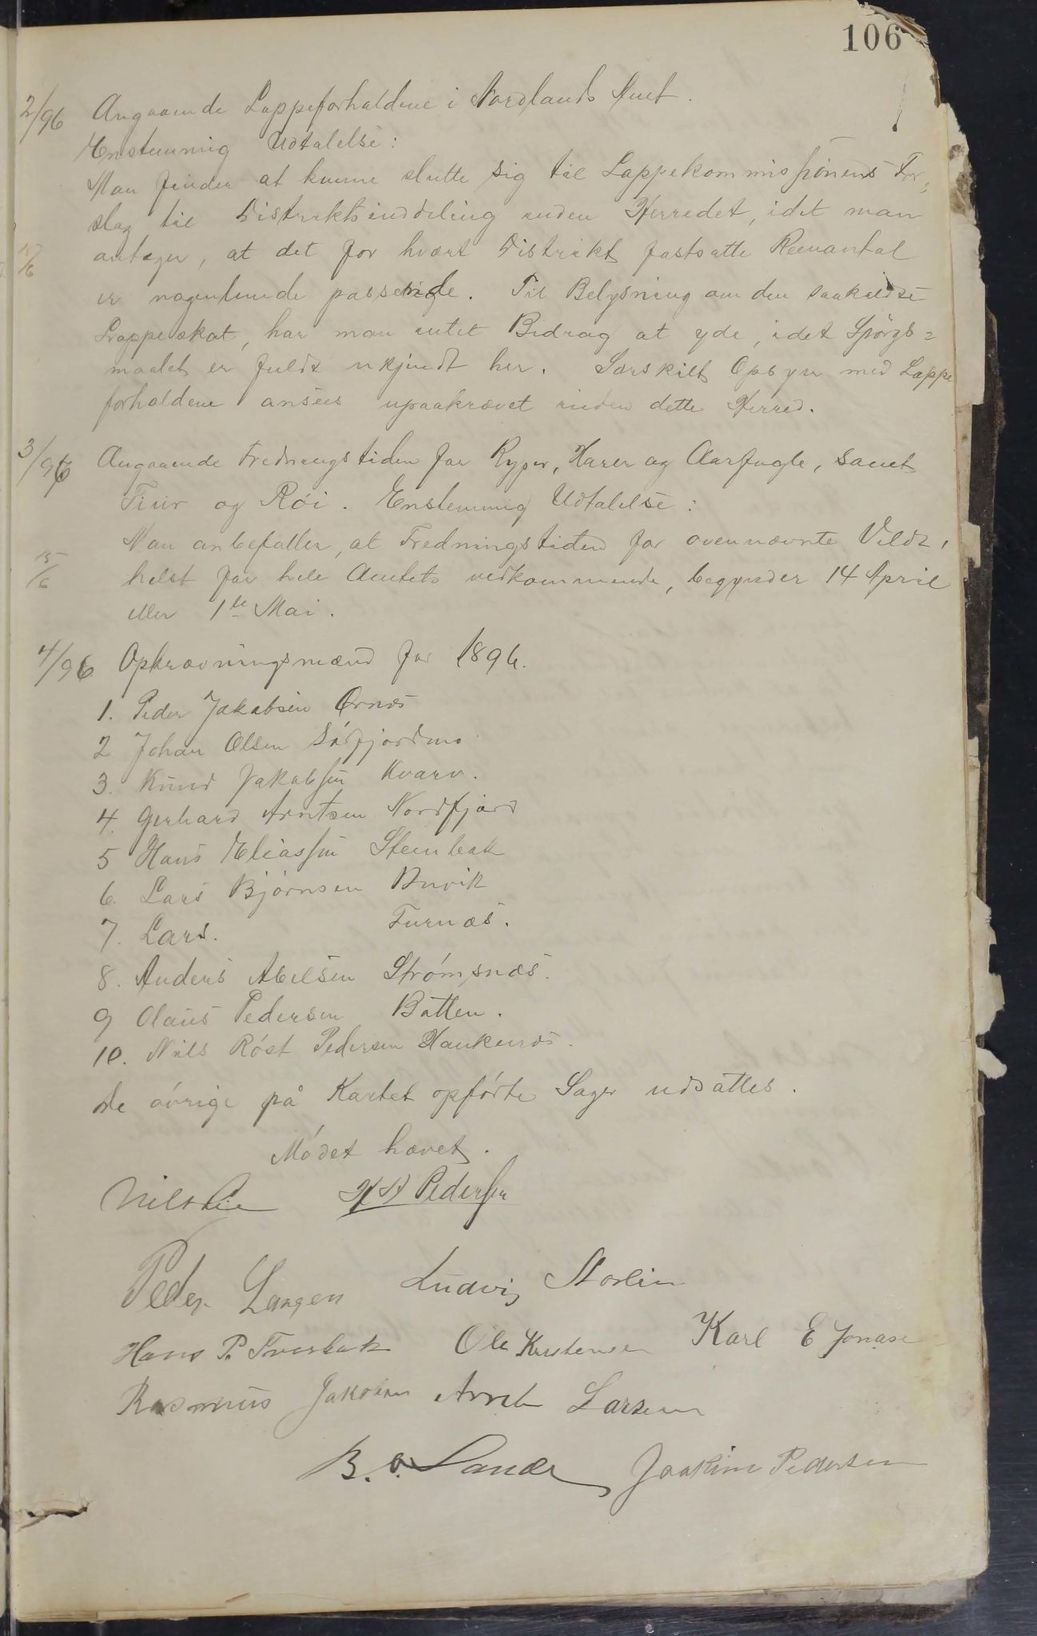 106
2/96 Angaaende Lappeforholdene i Nordlands Amt.
Enstemmig Udtalelse:
Man finder at kunne slutte sig til Lappekommissionens For-
slag til Distriktsinddeling inden Herredet, idet man
antager, at det for hvært Distrikt fastsatte Reenantal
er nogenlunde passende. Til Belysning om den saakaldte
Lappeskat, har man intet Bidrag at yde, idet Spörgs=
maalet er fuldt ukjendt her. Særskilt Opsyn med Lappe
forholdene ansees upaakrævet inden dette Herred.
3/96 Angaaende Fredningstiden for Ryper, Harer og Aarfugle, samt
Tiur og Röi. Enstemmig Udtalelse:
15/6 Man anbefaller, at Fredningstiden for ovennævnte Vildt,
helst for hele Amtets vedkommende, begynder 14 April
eller 1ste Mai.
4/96 Opkrævningsmænd for 1896.
1. Peder Jakobsen Ornes
2 Johan Olsen Sörfjordmo
3. Knud Jakobsen Kvarv.
4. Gerhard Arntsen Nordfjord
5 Hans Eliassen Steinbak
6. Lars Björnsen
7. Lars. Furnæs.
8. Anders Abelsen Strömsnæs.
9 Olaus Pedersen Batten.
10. Nils Röst Pedersen Haukenæs.
de övrige på Kartet opförte Sager udsattes.
Mödet hævet.
Nils Lie H A Pedersen
Peder Larsen Ludvig Storlien
Hans P. Tverbak Ole Kristensen Karl E Jonase
Rasmus Jakobsen Arnt Larsen
B. Lander Joakim Pedersen